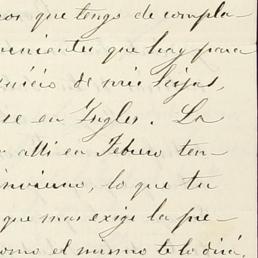 eos que tengo de compla-
venientes que hay para
inicio de mis hijas,
se en Ingles. La
r alli en Febrero ten-
invierno, lo que tu
que mas exige la pre-
como el mismo te lo dirá,